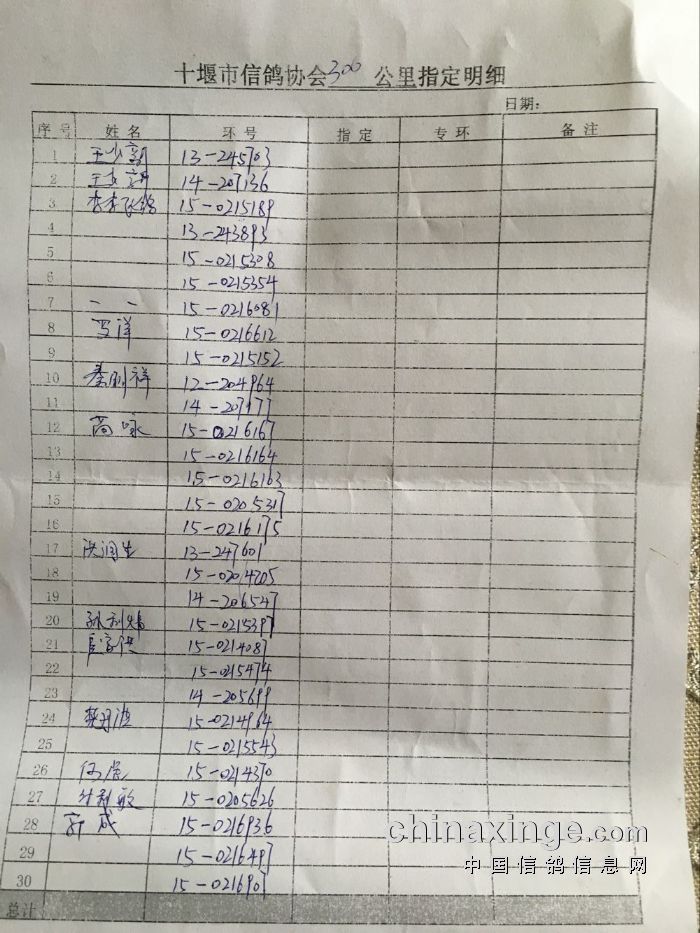 十堰市信鸽协会300 公里指定明细
日期:
序号 姓名 环号 指定 专环 备注
1 13-245703
2 14-207136
3 15-0215189
4 13-243893
5 15-0215308
6 15-0215354
7 一一 15-0216081
8 马洋 15-0216612
9 15-0215152
10 秦刚祥 12-204964
11 14-207177
12 尚咏 15-0216167
13 15-0216164
14 15-0216163
15 15-0205317
16 15-0216175
17 洪润生 13-247601
18 15-0204705
19 14-206547
20 15-0215397
21 15-0214087
22 15-0215474
23 14-205699
24 15-0214964
25 15-0215543
26 15-0214370
27 15-0205626
28 15-0216936
29 15-0216497
30 15-0216907
总计
chinaxinge.com
中国信鸽信息网